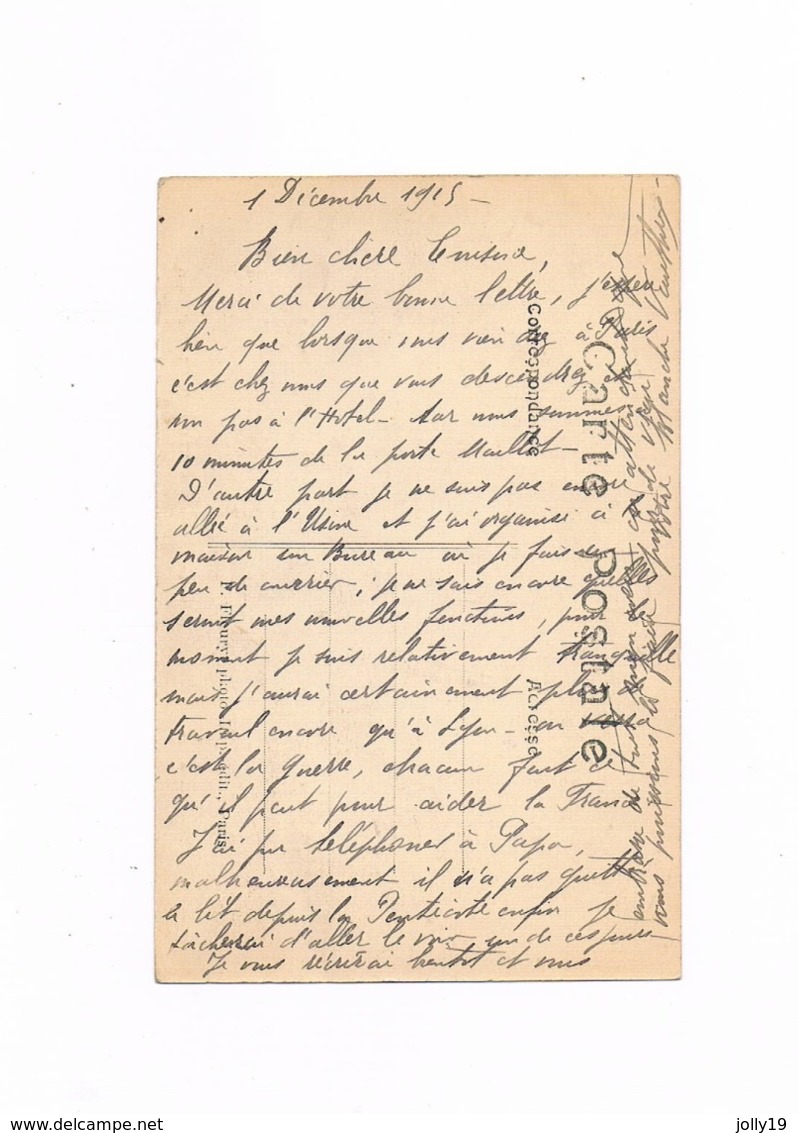 1 Décembre 1915 -
Bien chère Cousine,
Merci de votre bonne lettre, j'espère
bien que lorsque vous viendrez à Paris
c'est chez nous que vous descendrez et
non pas à l'Hotel - Car nous sommes à
10 minutes de la porte Maillot -
D'autre part je ne suis pas encore
allée à l'Usine et j'ai organisé à la
maison un Bureau où je fais un
peu de courrier; je ne sais encore quelles
seront mes nouvelles fonctions, pour le
moment je suis relativement tranquille
mais j'aurai certainement plus de
travail encore qu'à Lyon - on verra
c'est la guerre, chacun fait ce
qu'il peut pour aider la France
J'ai pu téléphoner à Papa,
malheureusement il n'a pas quitté
le lit depuis la Pentecôte enfin je
tâcherai d'aller le voir un de ces jours
Je vous récrirai bientôt et vous
embrasse de tout mon cœur en attendant que
nous puissions le faire plus de vive
votre Blanche
Carte Postale
Correspondance
Adresse
L. Fleury, phot. Imp. édit., Paris
delcampe.net
jolly19